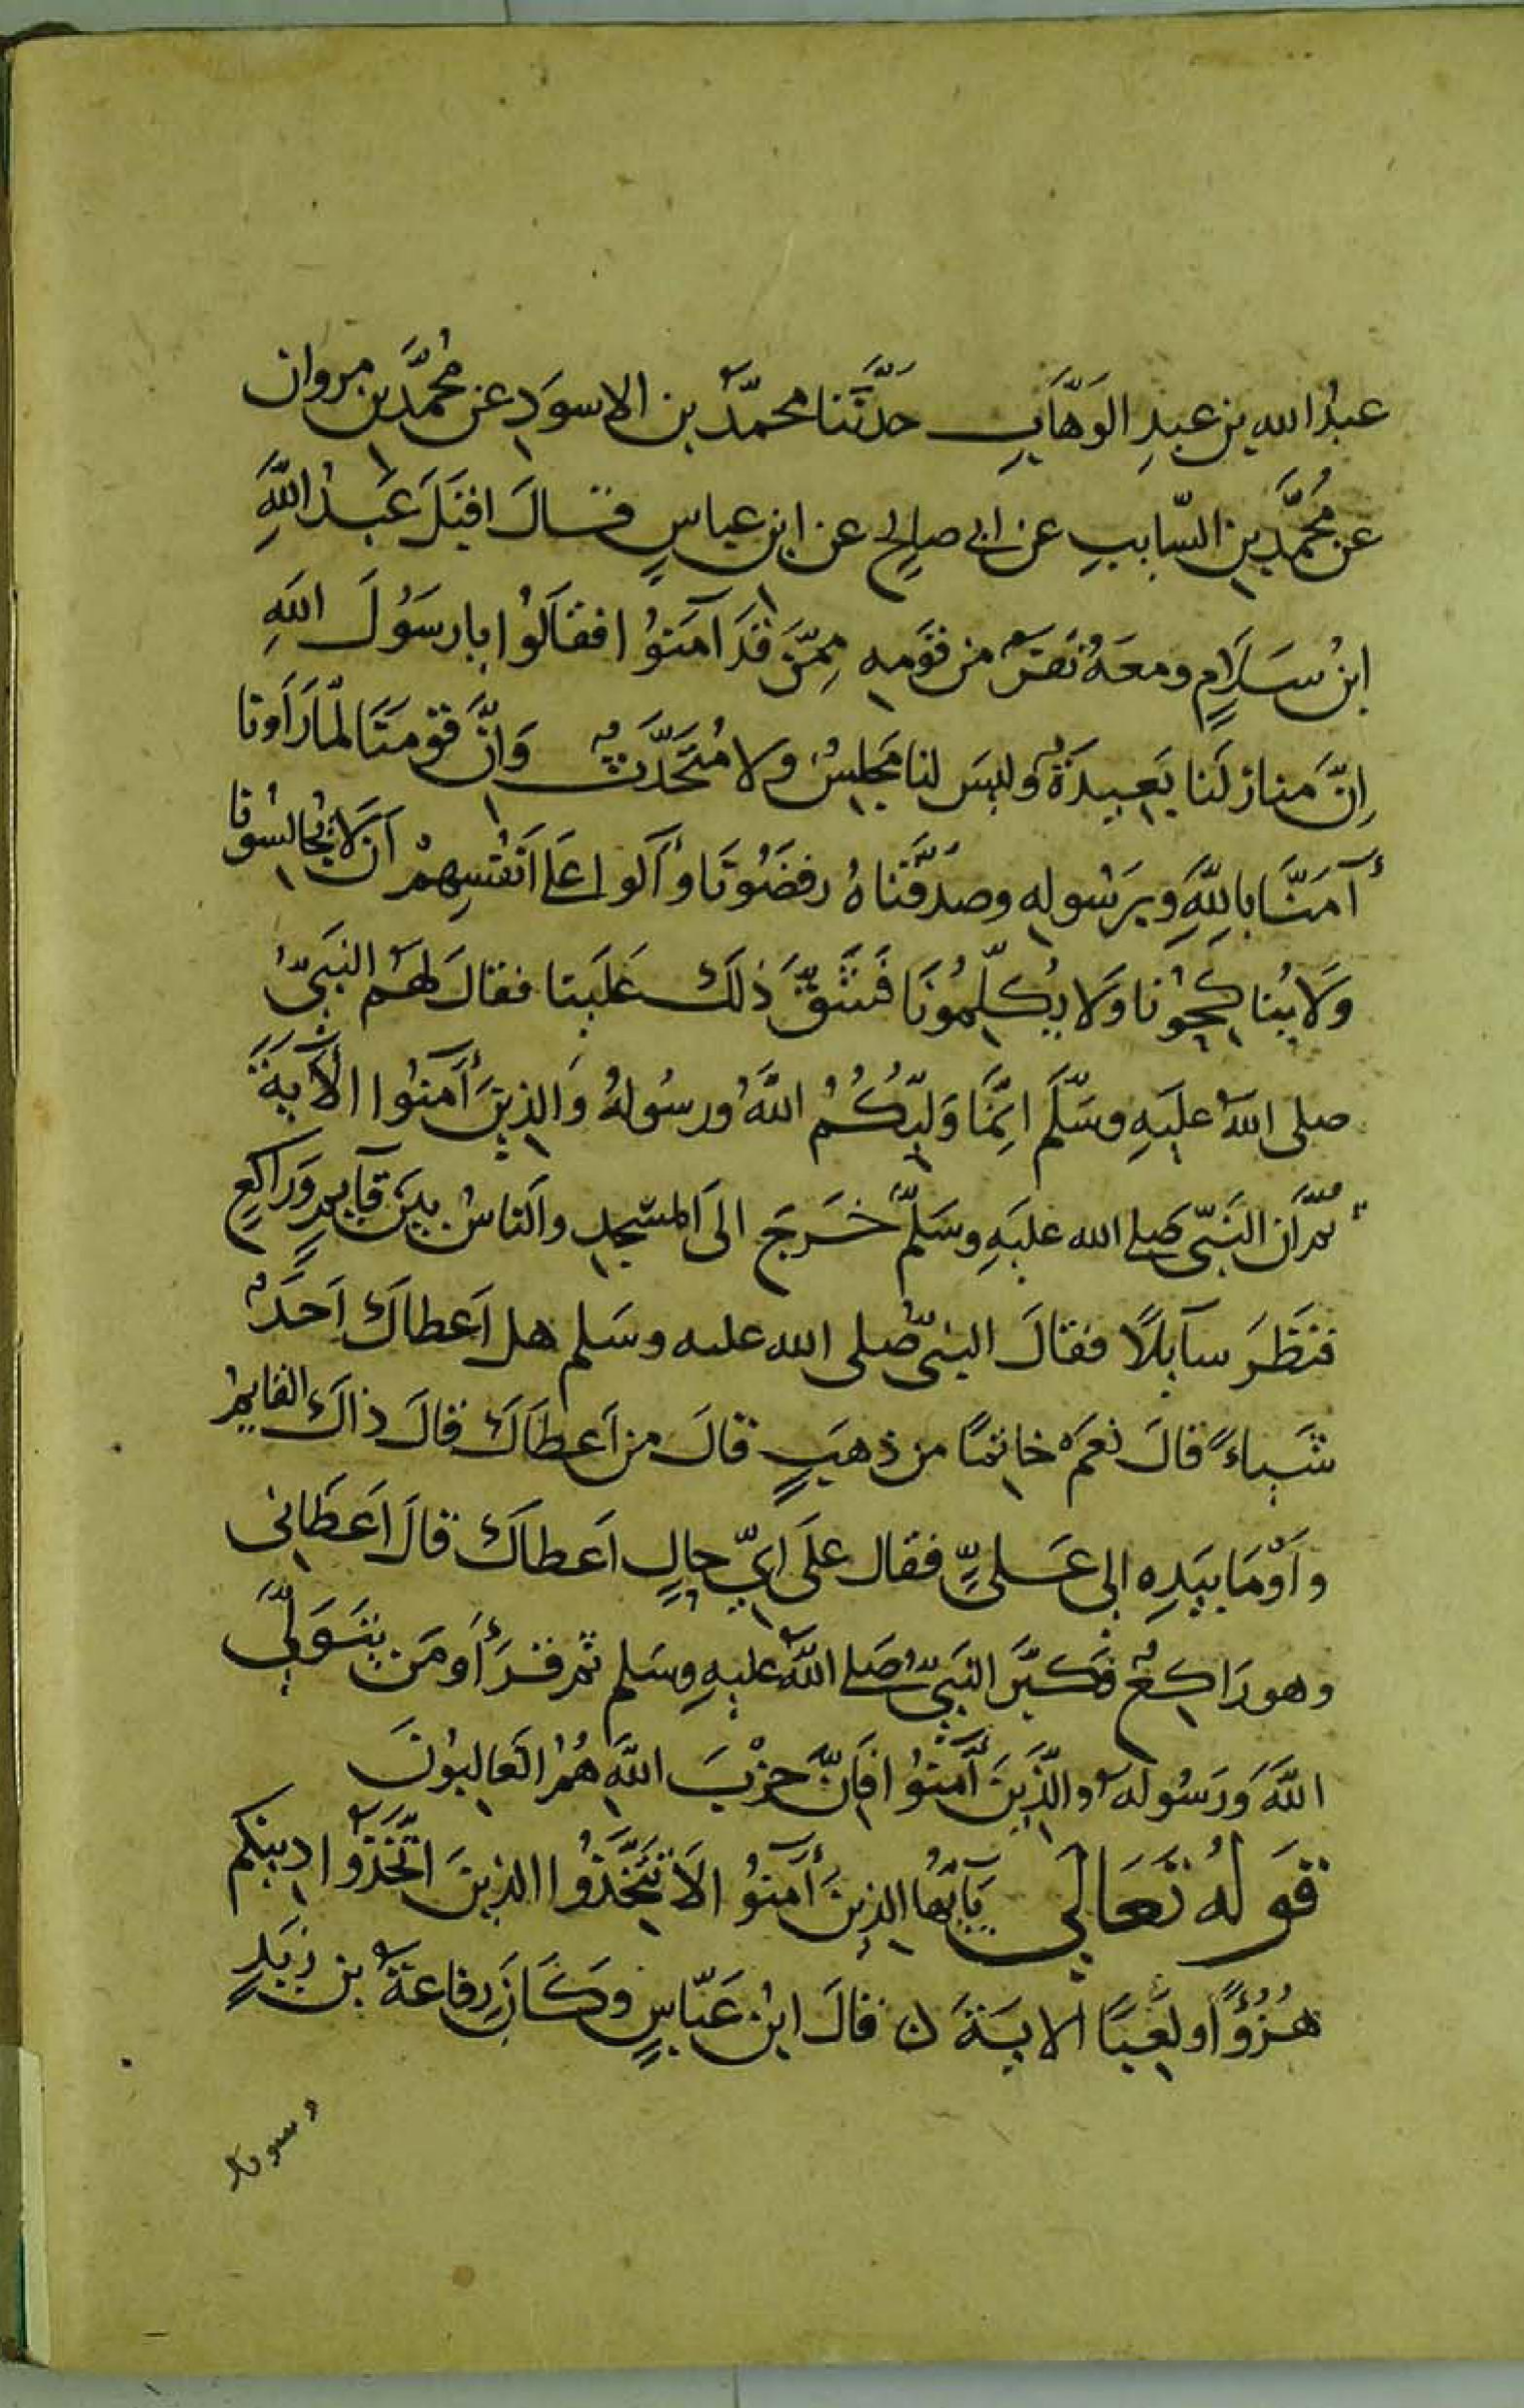 عبدُ الله بن عبدِ الوَهَّابِ حَدَّثَنا محمدّ بن الاسوَدِ عن مُحمَّدِ بن مروان
عن مُحمَّدِ بن السّايبِ عن ابي صالِحٍ عن ابن عباسٍ قال اقبَلَ عَبدُ اللَّهِ
ابنُ سَلَامٍ ومعَهُ نَفَرٌ من قَومِه مِمّن قَد آمَنُوا فقالُوا يا رسَوُلَ اللهِ
اِنَّ منازلَنا بَعِيدَةٌ وليسَ لنا مَجلِسٌ ولا مُتَحَدَّثٌ وَاِنَّ قَومَنَا لمّا رَاَونا
آمَنَّا باللَّهِ وبِرَسُولِه وصَدَّقنَاهُ رفَضُونَا وآلَوا على اَنفُسِهِمْ اَن لَا يُجالِسُونا
وَلَا يُناكِحُونا وَلَا يُكلِّمُونَا فَشَقَّ ذلكَ عَلَينا فقالَ لهم النبَىُّ
صلى اللهُ عليهِ وسَلَّم اِنمَّا وَليُّكُمُ اللَّهُ ورسُولهُ وَالذينَ آمنُوا الآيَةَ
ثمّ اَن النَبّى صلى الله عليَهِ وسَلَّم خَرجَ الى المسَجِدِ والناسُ بينَ قَآيمٍ وَرَاكِعٍ
فنَظَرَ سآيلًا فقالَ النبىّ صلى الله عليه وسَلم هل اَعطاكَ اَحَدٌ
شَيـاءً قالَ نعَم خاتمًا من ذهبٍ قالَ من اَعطَاكَ قالَ ذاكَ القايمُ
واَومَا بيَدِه الى عَلىٍّ فقال علَى اىِّ حالٍ اَعطاكَ قالَ اَعطَانى
وهو رَاكِعٌ فكبَّرَ النَبىُّ صَلى اللهُ عليهِ وسَلم ثم قَرَأ ومَن يتَوَلَّى
اللَّهَ وَرَسُولَه والذّينَ آمنُوا فَانّ حِزْبَ اللَّهِ هُمُ الغَالِبُونَ
قَولهُ تعَالَى يَآيُّها الذينَ آمنُوا لَا تَتَّخِذُوا الذينَ اتَّخَذُوا دِينكم
هُزُؤًا ولَعِبًا الايةَ ن قالَ ابنُ عَبّاسٍ وَكَانَ رِفاعَة بن زَيدٍ
وسويد